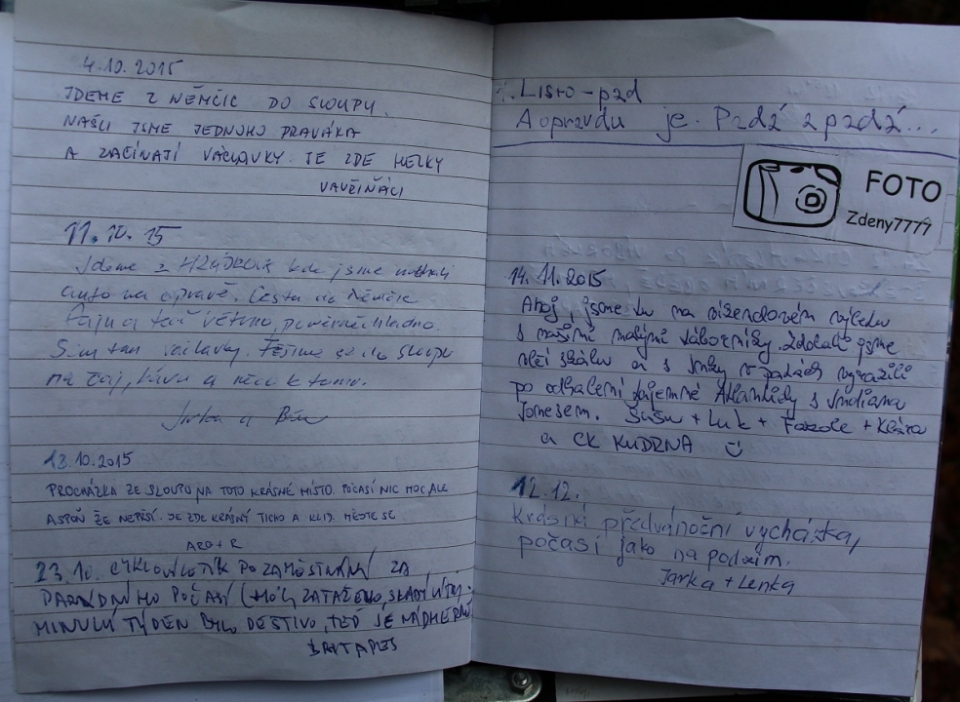 4.10. 2015
JDEME Z NĚMČIC DO SLOUPU.
NAŠLI JSME JEDNOHO PRAVÁKA
A ZAČÍNAJÍ VÁCLAVKY. JE ZDE HEZKY
VAVŽIŇÁCI
11.10.15
Jdeme z kde jsme nechali
auto na opravě. Cesta na Němčice
fajn a teď větrno, poměrně chladno.
Sem tam václavky. Těšíme se do Sloupu
na čaj, kávu a něco k tomu.
Jirka a
13.10.2015
PROCHÁZKA ZE SLOUPU NA TOTO KRÁSNÉ MÍSTO. POČASÍ NIC MOC ALE
ASPOŇ ŽE NEPRŠÍ. JE ZDE KRÁSNÝ TICHO A KLID. MĚJTE SE
23.10. PO ZAMĚSTNÁNÍ ZA
POČASÍ ZATAŽENO,
MINULÝ TÝDEN BYLO DEŠTIVO, TEĎ JE NÁDHERNĚ
Listo-pad
A opravdu je. Padá a padá...
FOTO
Zdeny7777
14.11.2015
Ahoj, jsme tu na víkendovém výletu
s našimi malými táborníky. Zdolali jsme
skálu a s v patách vyrazili
po odhalení tajemné Atlantidy s Indiana
Jonesem. + Luk + Fazole + Klára
a CK KUDRNA ☺
12.12.
Krásná předvánoční vycházka,
počasí jako na podzim.
Jarka + Lenka